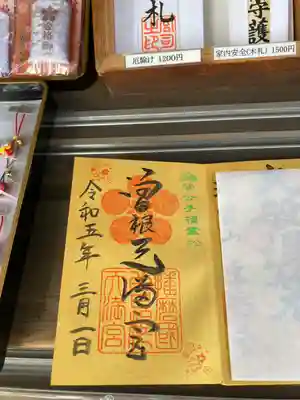 札
守護
厄除け 1200円
家内安全(木札) 1500円
曽根天満宮
令和五年 三月一日